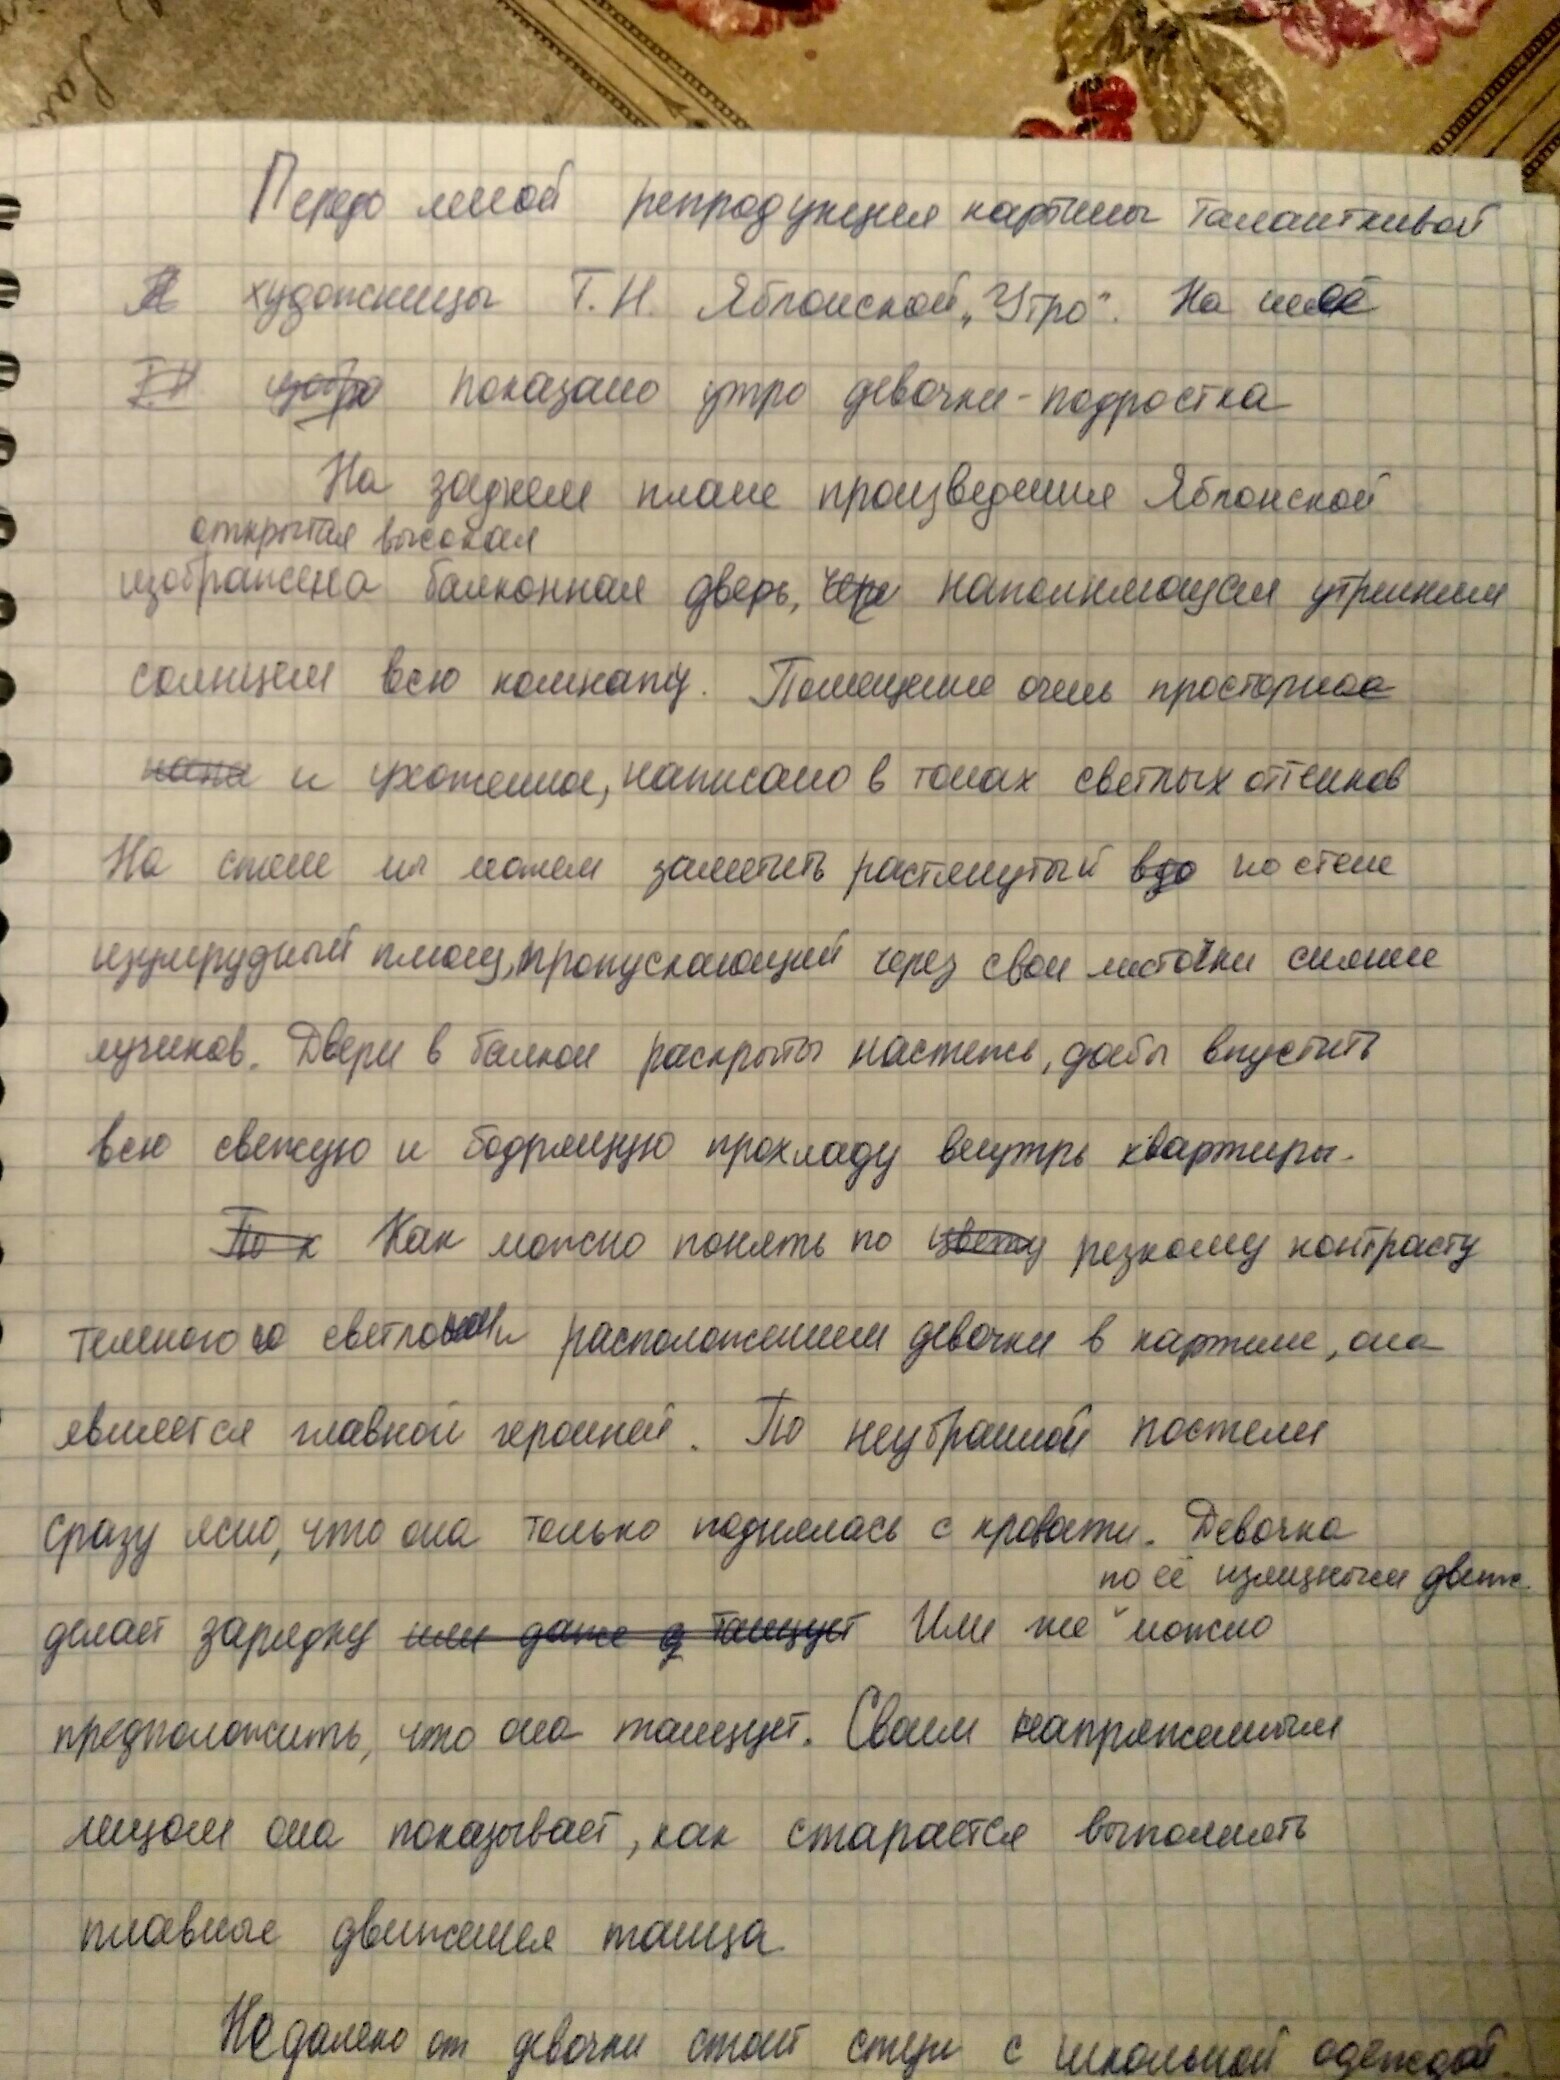 Передо мной репродукция картины талантливой
художницы Т.Н. Яблонской „Утро“. На ней
показано утро девочки-подростка
На заднем плане произведения Яблонской
открытая высокая
изображена балконная дверь, наполняющая утренним
солнцем всю комнату. Помещение очень просторное
и ухоженное, написано в тонах светлых оттенков
На стене мы можем заметить растянутый по стене
изумрудный плющ, пропускающий через свои листочки сияние
лучиков. Двери в балкон раскрыты настежь, дабы впустить
всю свежую и бодрящую прохладу внутрь квартиры.
Как можно понять по резкому контрасту
темного со светлым и расположением девочки в картине, она
является главной героиней. По неубранной постели
сразу ясно, что она только поднялась с кровати. Девочка
по её изящным движ.
делает зарядку или даже танцует Или же можно
предположить, что она танцует. Своим напряженным
лицом она показывает, как старается выполнять
плавные движения танца
Недалеко от девочки стоит стул с школьной одеждой.